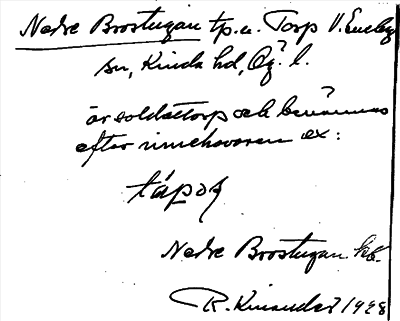 Nedre Brostugan tp. u. Torp V. Eneby
sn, Kinda hd, Ög. l.
är soldattorp och benämnes
efter innehavaren ex:
tåpos
Nedre Brostugan kb.
R. Kinander 1928